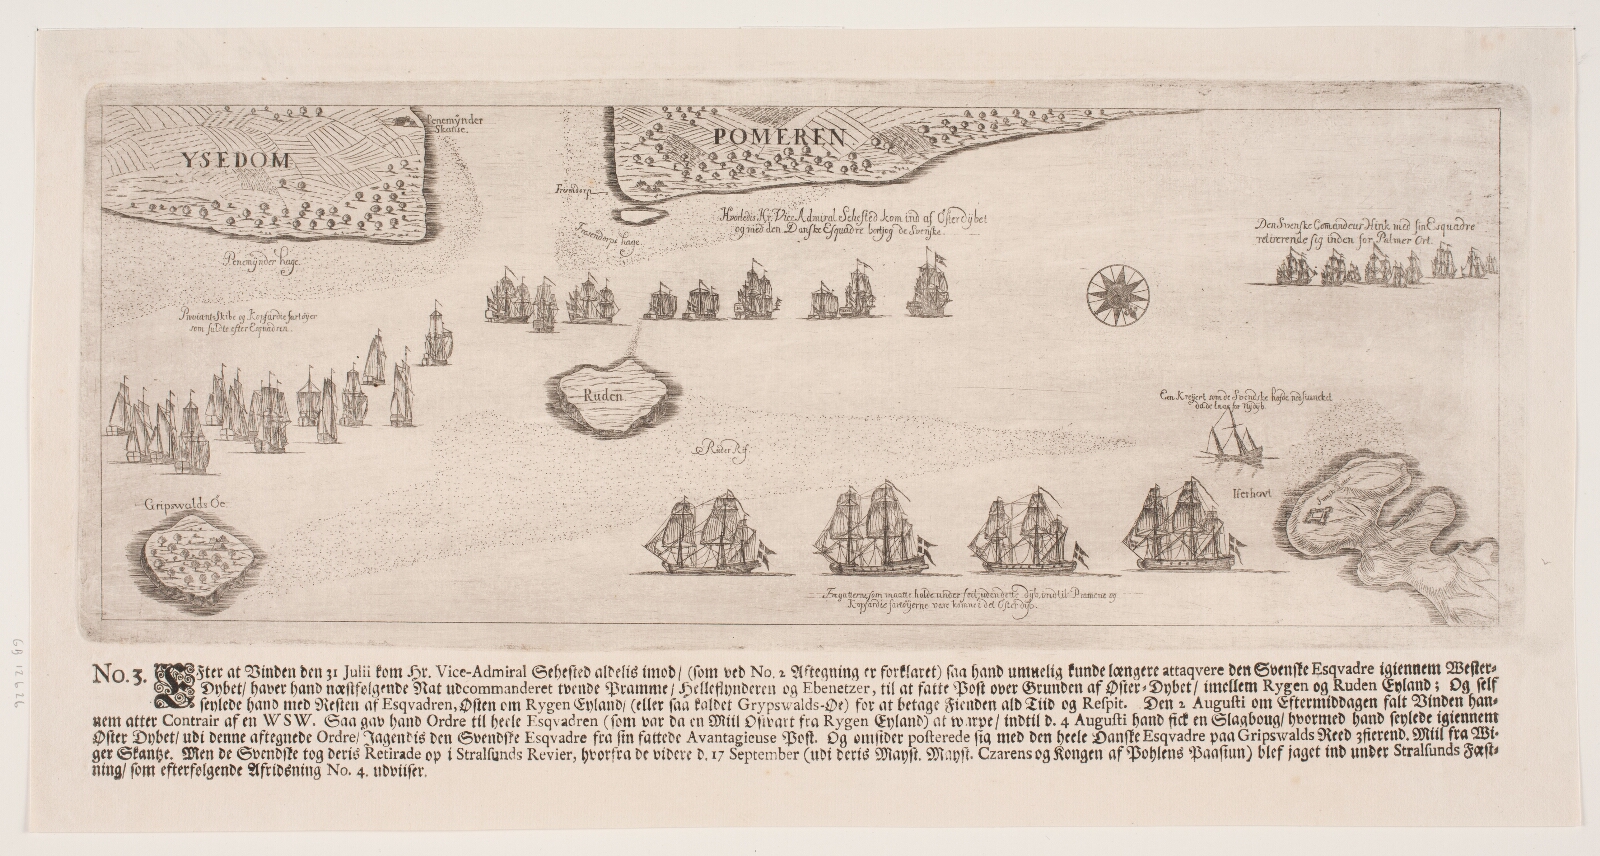 Penemÿnder
Skanse.
YSEDOM
POMEREN
Fresendorp
Hvorledis Hr. Vice Admiral Sehested kom ind af Østerdÿbet
og med den Danske Esquadre bortjog de Svenske.
Den Svenske Comandeur Hink med sin Esquadre
retirerende sig inden for Palmer Ort.
Fresendorps hage.
Penemÿnder hage.
Proviant Skibe og Kopfardie fartøÿer
som fuldte efter Esquadren.
Ruden
Een Kreÿert som de Svendske hafde nedsuncket
Ruder Rif.
Gripswolds Öe
Fregatterne som maatte holde under seel uden dette Dÿb, indtil Pramene og
Kopfardie fartøÿerne vare kommet det Øster dÿb.
No. 3. EFter at Vinden den 31 Julii kom Hr. Vice-Admiral Sehested aldelis imod/ (som ved No. 2 Aftegning er forklaret) saa hand umuelig kunde længere attaqvere den Svenske Esqvadre igiennem Wester-
Dybet/ haver hand næstfølgende Nat udcommanderet tvende Pramme/ Helleflynderen og Ebenetzer, til at fatte Post over Grunden af Øster-Dybet/ imellem Rygen og Ruden Eyland; Og self
seylede hand med Resten af Esqvadren, Østen om Rygen Eyland/ (eller saa kaldet Grypswalds-Øe) for at betage Fienden ald Tiid og Respit. Den 2 Augusti om Eftermiddagen falt Vinden han-
nem atter Contrair af en WSW. Saa gav hand Ordre til heele Esqvadren (som var da en Miil Osivart fra Rygen Eyland) at warpe/ indtil d. 4 Augusti hand fick en Slagboug/ hvormed hand seylede igiennem
Øster Dybet/ udi denne aftegnede Ordre/ Jagendis den Svendske Esqvadre fra sin fattede Avantagieuse Post. Og omsider posterede sig med den heele Danske Esqvadre paa Gripswalds Reed 3fierend. Miil fra Wi-
ger Skantze. Men de Svendske tog deris Retirade op i Stralsunds Revier, hvorfra de videre d. 17 September (udi deris Mayst. Mayst. Czarens og Kongen af Pohlens Paasiun) blef jaget ind under Stralsunds Fæst-
ning/ som efterfølgende Afridsning No. 4. udviiser.